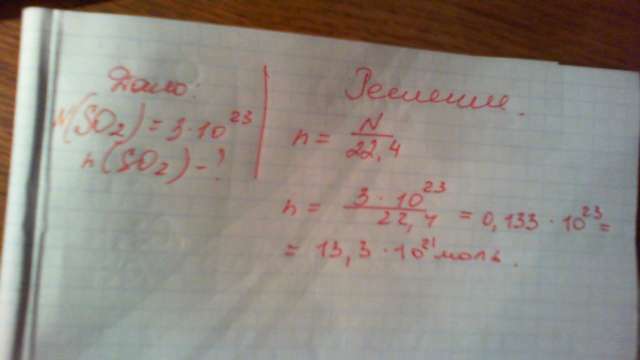 Дано:
N(SO₂) = 3·10²³
n(SO₂) - ?
Решение.
n = N/22,4
n = 3·10²³/22,4 = 0,133·10²³ =
= 13,3·10²¹ моль.